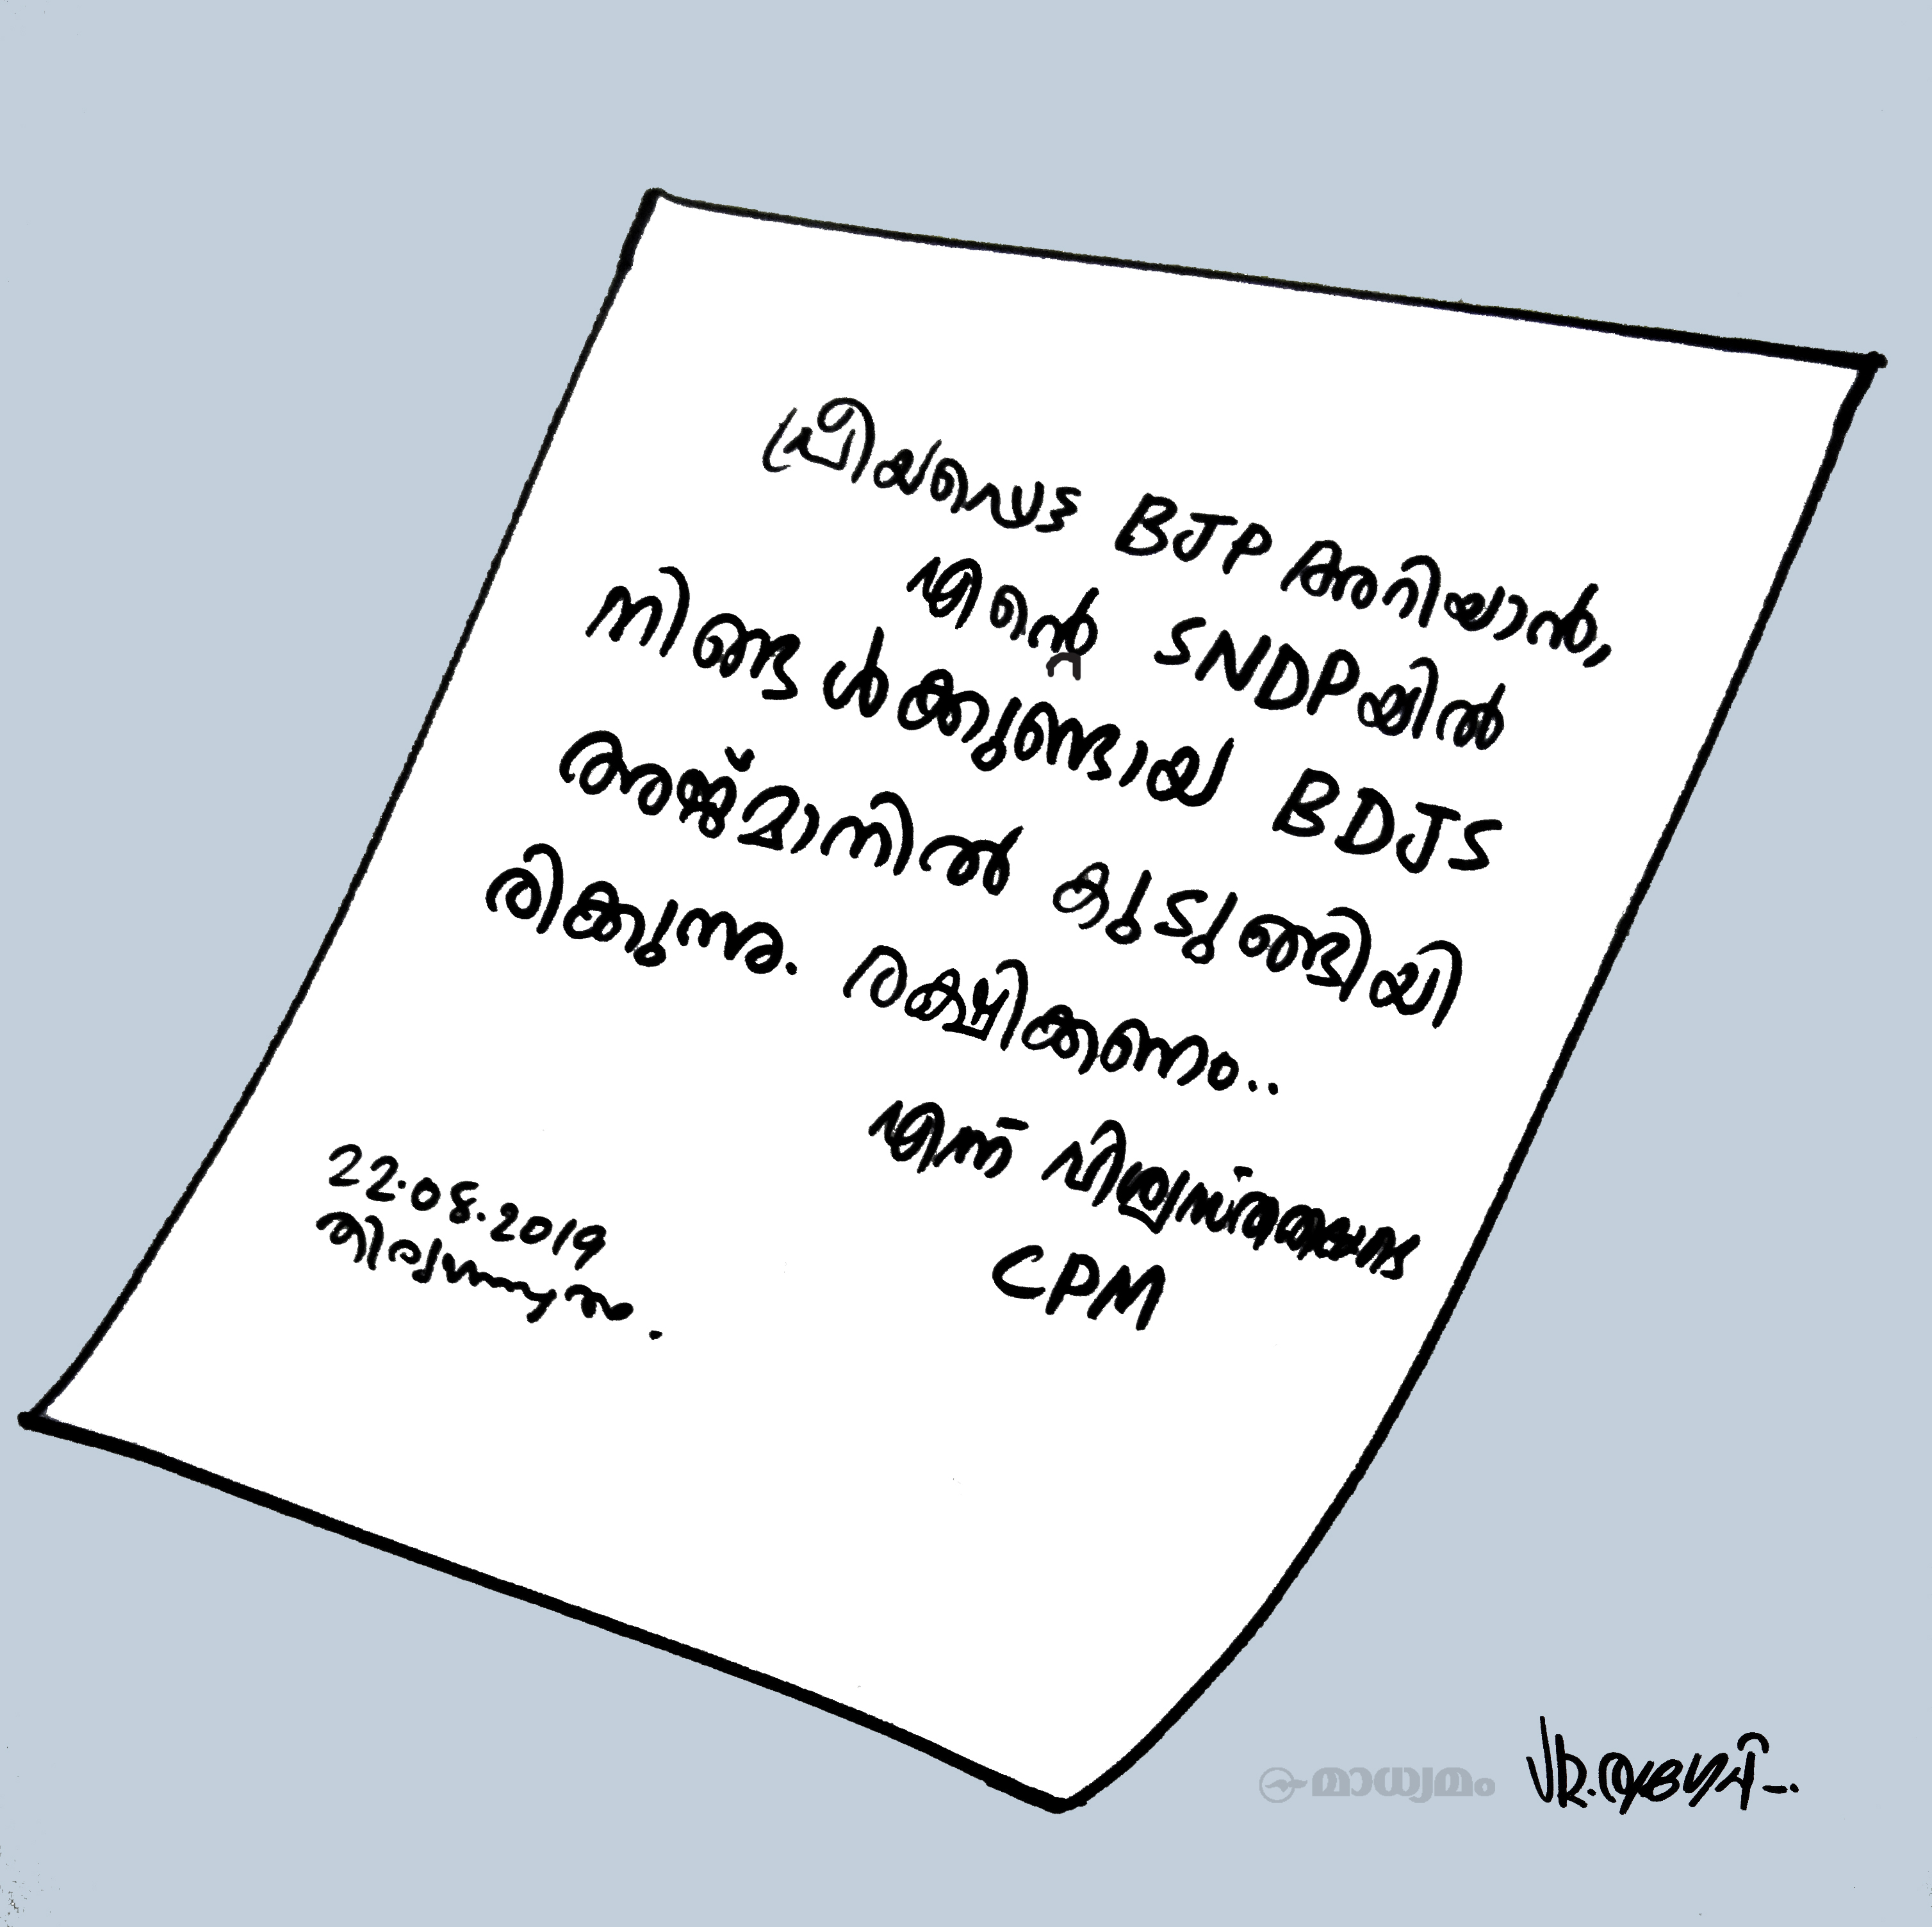 പ്രിയപ്പെട്ട BJP അറിയാൻ,
എന്റെ SNDPയിൽ
നിങ്ങൾക്കുണ്ടായ BDJS
അജ്മാനിൽ കുടുങ്ങിയി
രിക്കുന്നു. രക്ഷിക്കണം..
എന്ന് വിശ്വസ്തതയോടെ
CPM
22.08.2019
മാധ്യമം